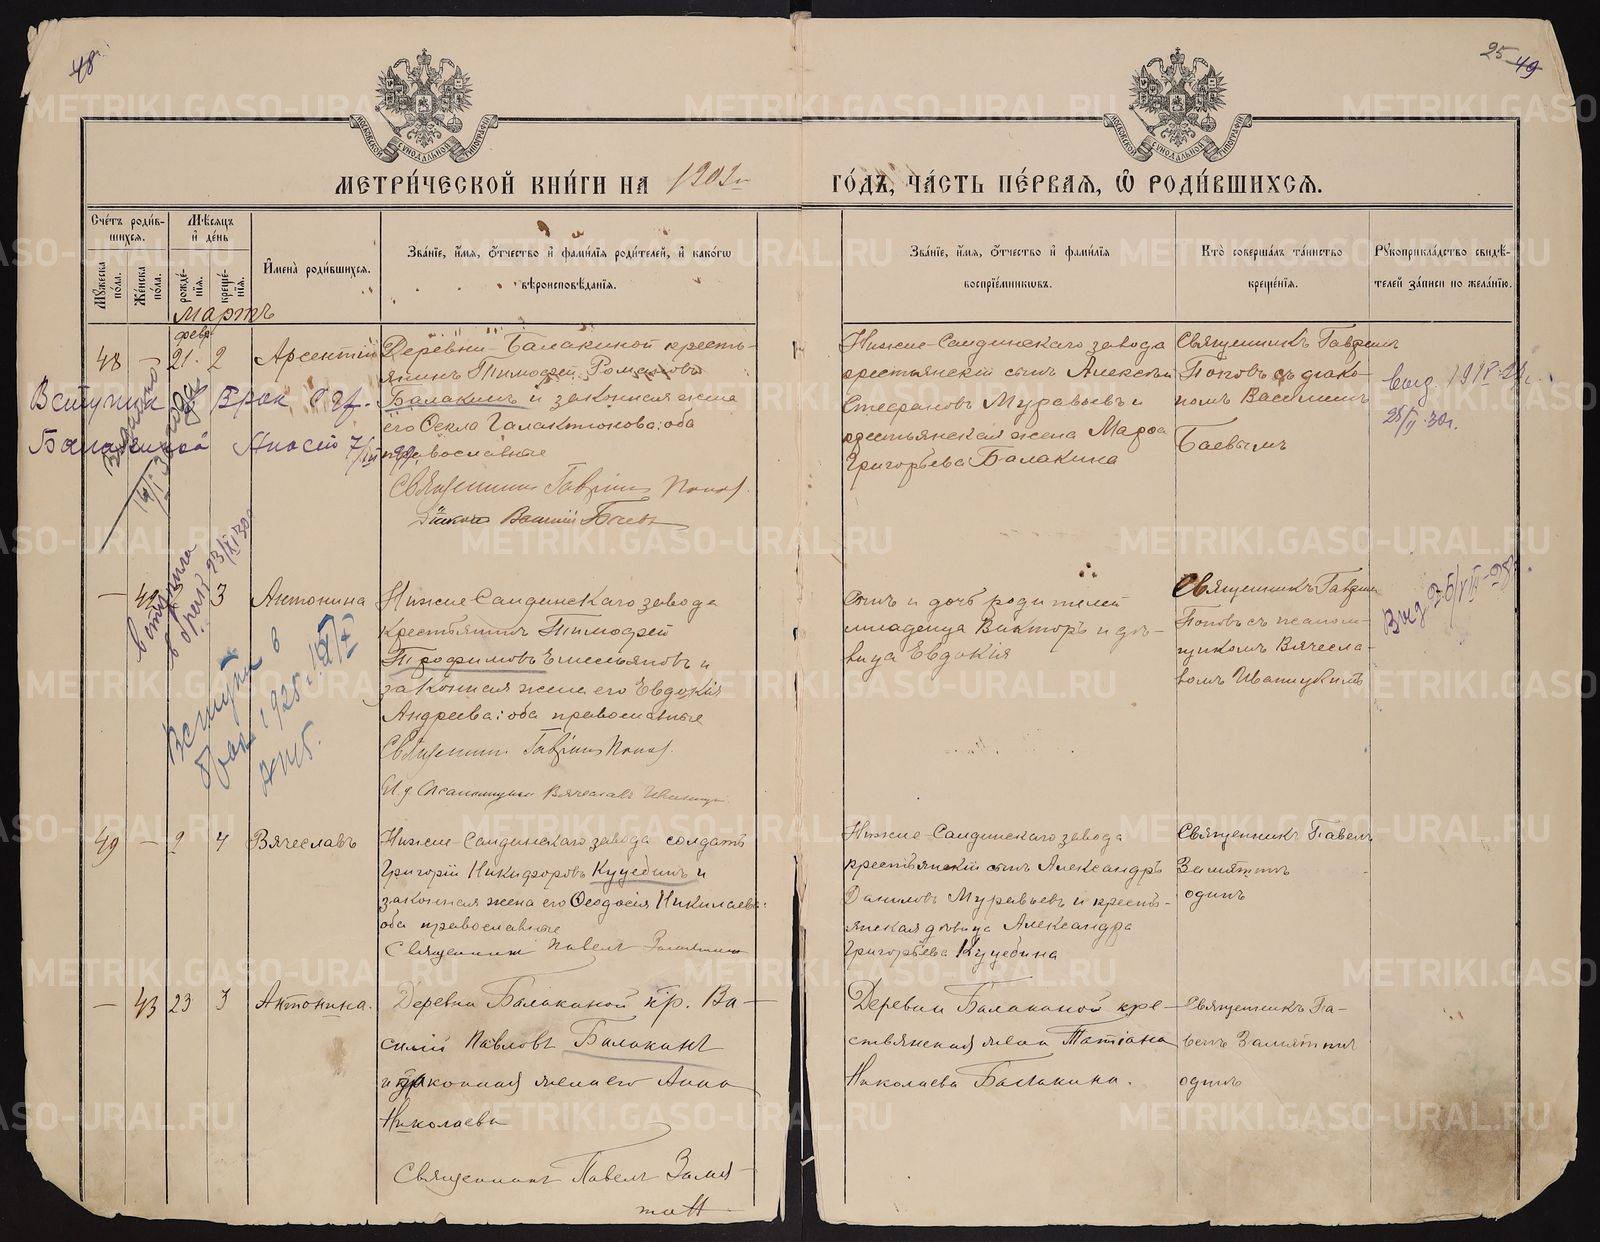 48
25 49
МЕТРИ́ЧЕСКОЙ КНИ́ГИ НА 1902 ГО́ДЪ, ЧА́СТЬ ПЕ́РВАЯ, Ѿ РОДИ́ВШИХСЯ.
Сче́тъ роди́вшихся.
Мꙋ́жеска по́ла.
Же́нска по́ла.
Мѣ́сяцъ и҆ де́нь
рожде́нїя.
креще́нїя.
И҆мена̀ роди́вшихся.
Зва́нїе, и҆́мя, ѻ҆́тчество и҆ фами́лїя роди́телей, и҆ како́гѡ вѣроисповѣ́данїя.
Зва́нїе, и҆́мя, ѻ҆́тчество и҆ фами́лїя воспрїе́мникѡвъ.
Кто̀ соверша́лъ та́инство креще́нїя.
Рꙋкоприкла́дство свидѣ́телей за́писи по жела́нїю.
мартъ
февр
48 — 21 2 Арсентій
Деревни Балакиной кресть-
янинъ Тимофей Романовъ
Балакинъ и законная жена
его Ѳекла Галактіонова: оба
православные
Священникъ Гавріилъ Поповъ
Діаконъ Василій Баевъ
Нижне-Салдинскаго завода
крестьянскій сынъ Алексѣй
Стефановъ Муравьевъ и
крестьянская жена Марѳа
Григорьева Балакина
Священникъ Гавріилъ
Поповъ съ діако-
номъ Василіемъ
Баевымъ
Вступил в брак с гр.
Балакиной
— 42 3 Антонина
Нижне Салдинскаго завода
крестьянинъ Тимофей
Трофимовъ Емельяновъ и
законная жена его Евдокія
Андреева: оба православные
Священникъ Гавріилъ Поповъ
И д Псаломщика Вячеславъ
сынъ и дочь родителей
младенца Викторъ и дѣ-
вица Евдокія
Священникъ Гавріилъ
Поповъ съ псалом-
щикомъ Вячесла-
вомъ
вступила
в брак 23/XI 30
Вступил в
брак 1925
49 — 2 4 Вячеславъ
Нижне-Салдинскаго завода солдатъ
Григорій Никифоровъ Куцебинъ и
законная жена его Ѳеодосія Николаева:
оба православные
Священникъ Павелъ Замятинъ
Нижне-Салдинскаго завода
крестьянскій сынъ Александръ
Даниловъ Муравьевъ и кресть-
янская дѣвица Александра
Григорьева Куцебина
Священникъ Павелъ
Замятинъ
одинъ
— 43 23 3 Антонина.
Деревни Балакиной кр. Ва-
силій Павловъ Балакинъ
и законная жена его Анна
Николаева
Священникъ Павелъ Замя-
тинъ
Деревни Балакиной кре-
стьянская жена Татіана
Николаева Балакина.
Священникъ Па-
велъ Замятинъ
одинъ